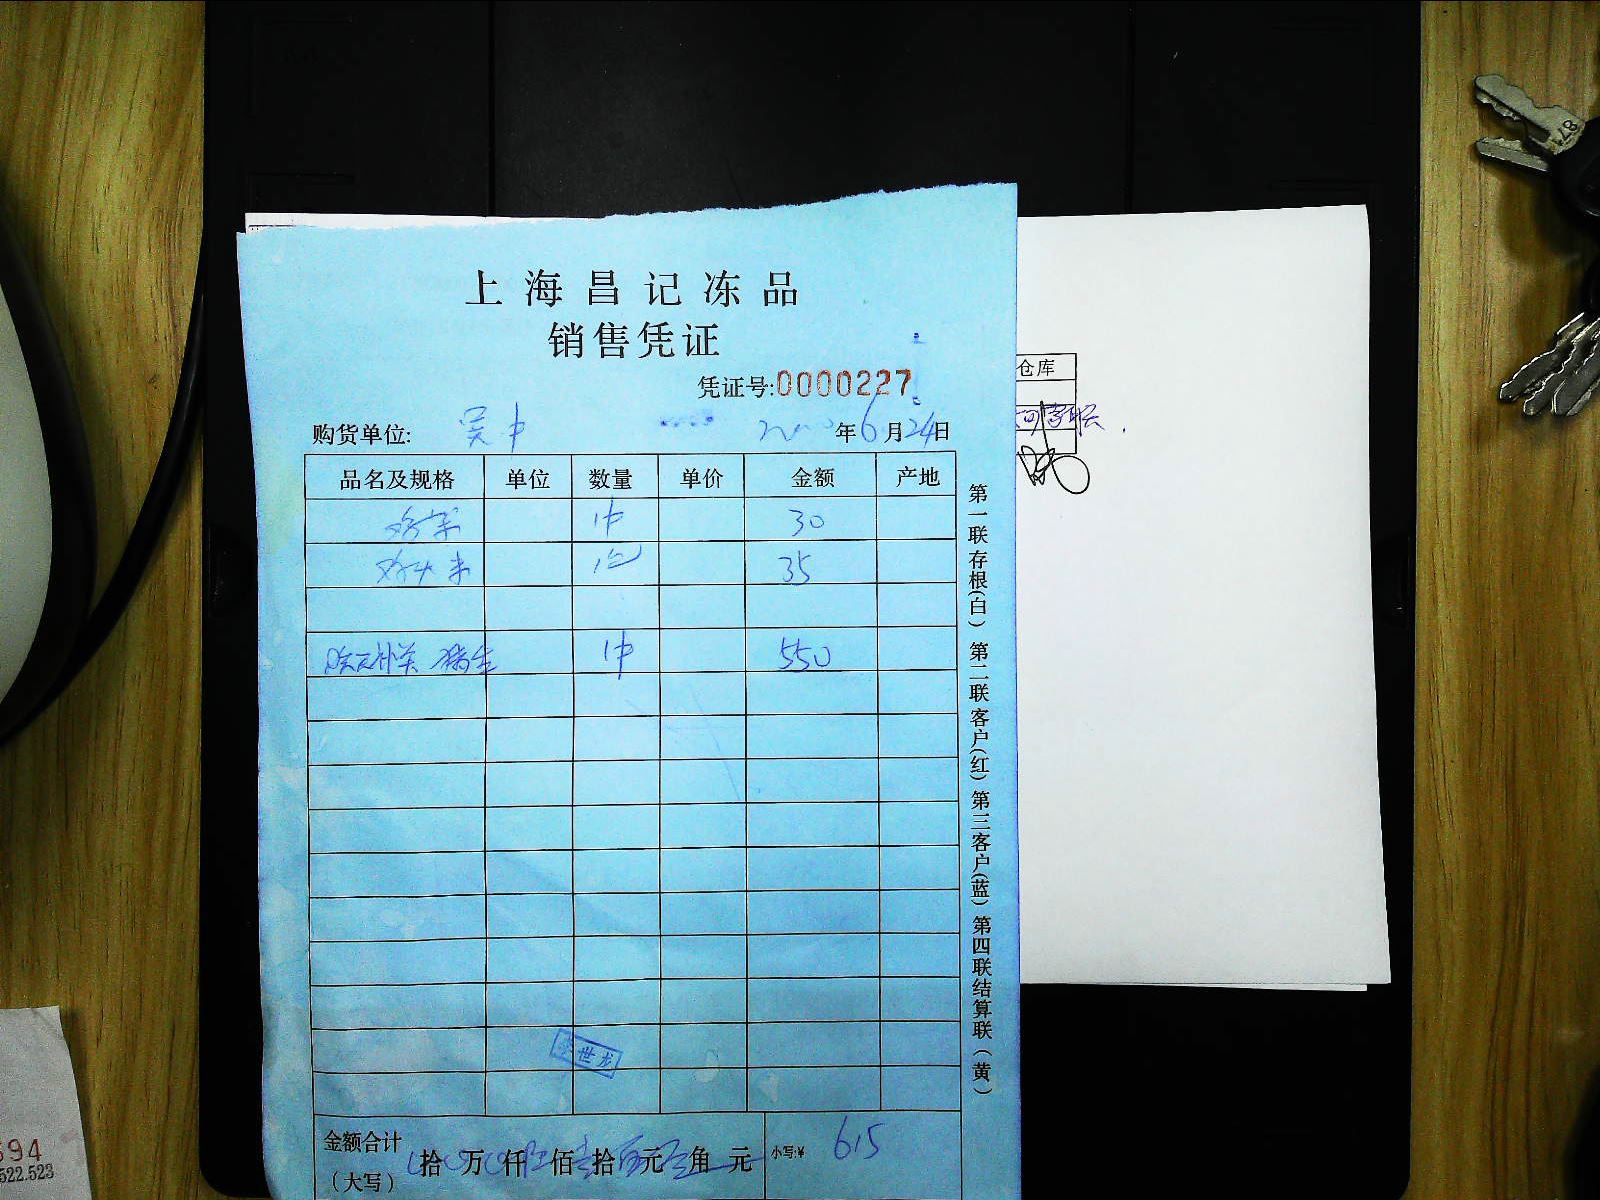 上海昌记冻品
销售凭证
凭证号:0000227
购货单位: 吴中 年6月24日
品名及规格 单位 数量 单价 金额 产地
1件 30
1包 35
1件 550
金额合计
(大写) 拾 万 仟 佰 拾 元 角 元 小写:¥ 615
第一联存根(白) 第二联客户(红) 第三客户(蓝) 第四联结算联(黄)
世龙
仓库
594
522.523
87